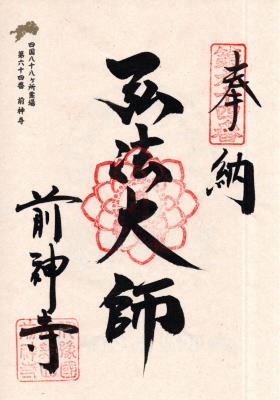 奉納
弘法大師
前神寺
四国八十八ヶ所霊場
第六十四番 前神寺